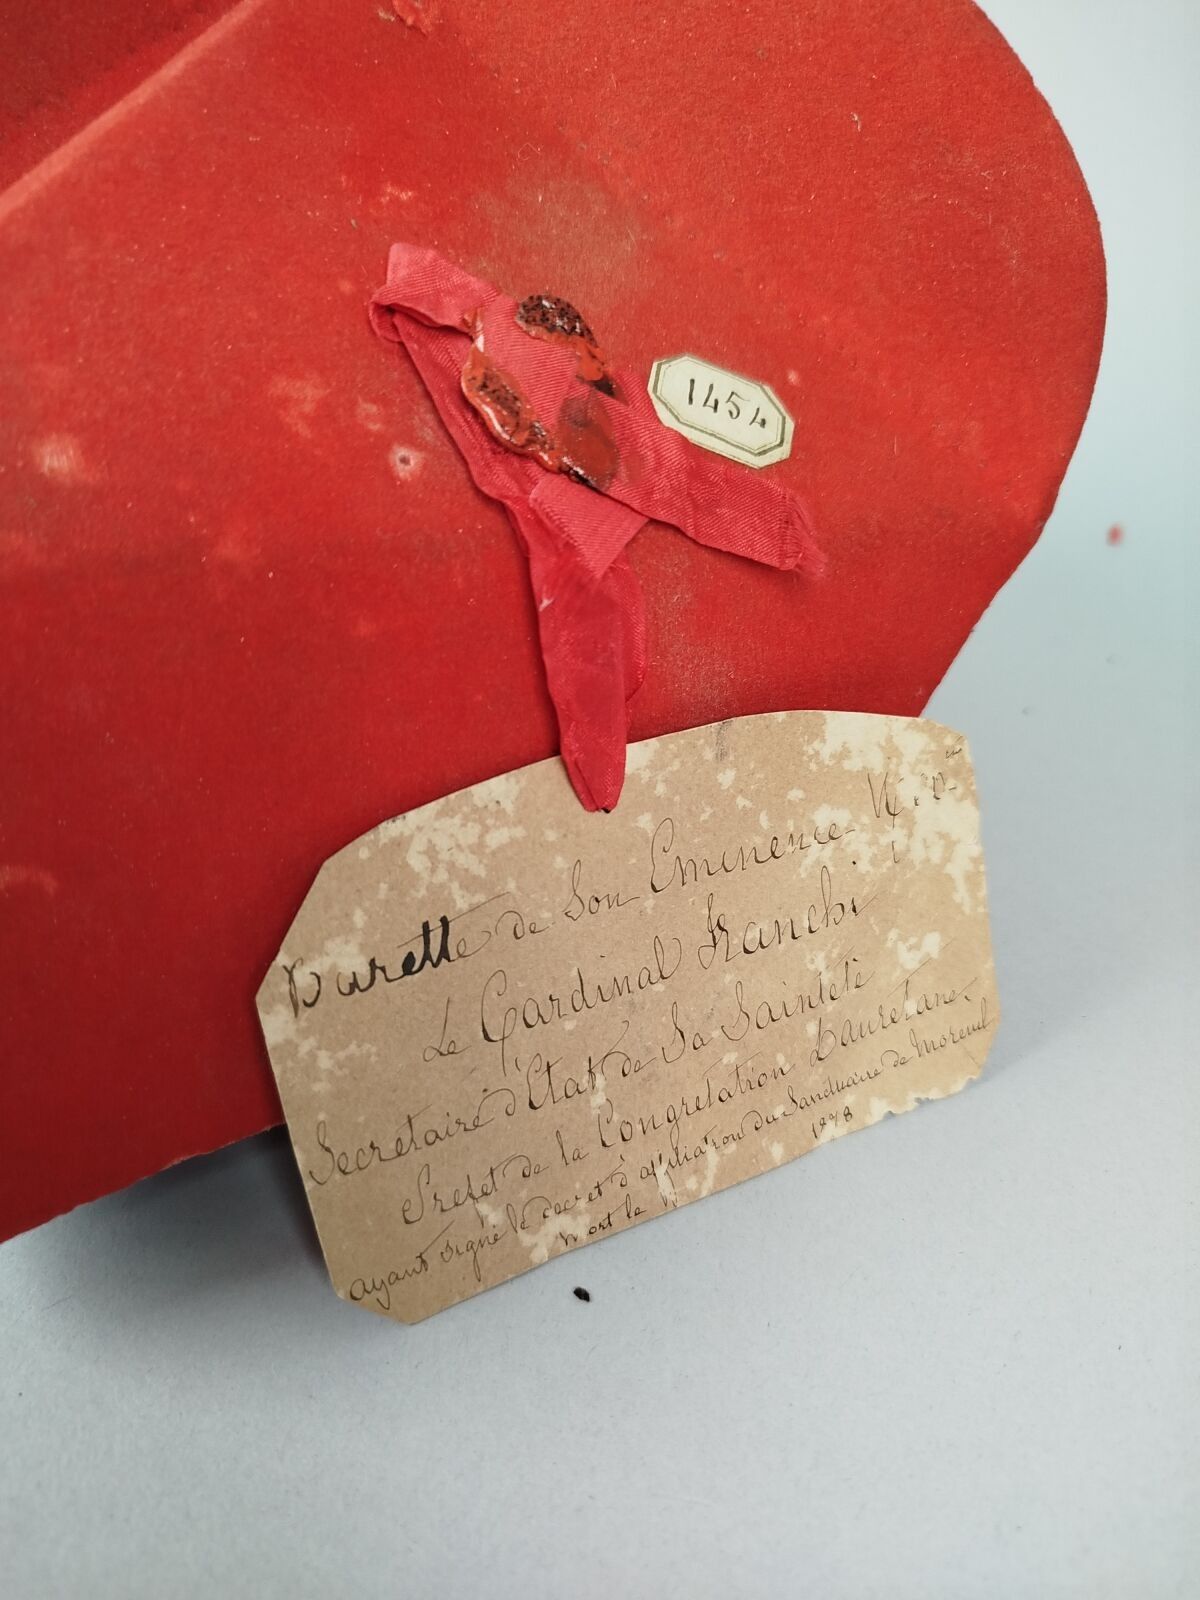 1454
Barette de Son Eminence
Le Cardinal Franchi
Secretaire d'Etat de Sa Sainteté
Prefet de la Congretation Lauretane
ayant signé le decret d'affiliation du Sanctuaire de Moreuil
Mort le 1878